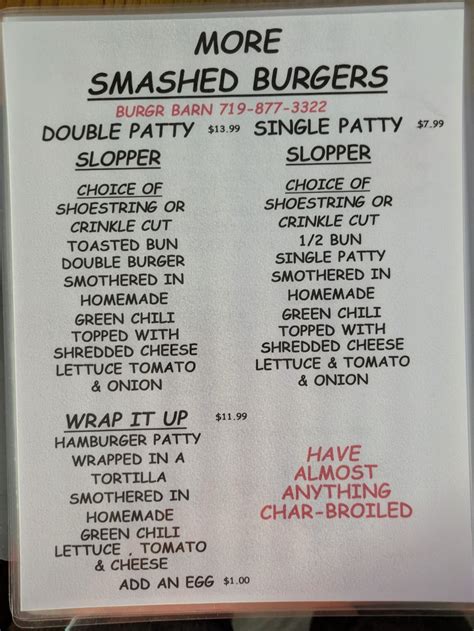 MORE
SMASHED BURGERS
BURGR BARN 719-877-3322
DOUBLE PATTY $13.99 SINGLE PATTY $7.99
SLOPPER
CHOICE OF
SHOESTRING OR
CRINKLE CUT
TOASTED BUN
DOUBLE BURGER
SMOTHERED IN
HOMEMADE
GREEN CHILI
TOPPED WITH
SHREDDED CHEESE
LETTUCE TOMATO
& ONION
SLOPPER
CHOICE OF
SHOESTRING OR
CRINKLE CUT
1/2 BUN
SINGLE PATTY
SMOTHERED IN
HOMEMADE
GREEN CHILI
TOPPED WITH
SHREDDED CHEESE
LETTUCE TOMATO
& ONION
WRAP IT UP $11.99
HAMBURGER PATTY
WRAPPED IN A
TORTILLA
SMOTHERED IN
HOMEMADE
GREEN CHILI
LETTUCE , TOMATO
& CHEESE
ADD AN EGG $1.00
HAVE
ALMOST
ANYTHING
CHAR-BROILED